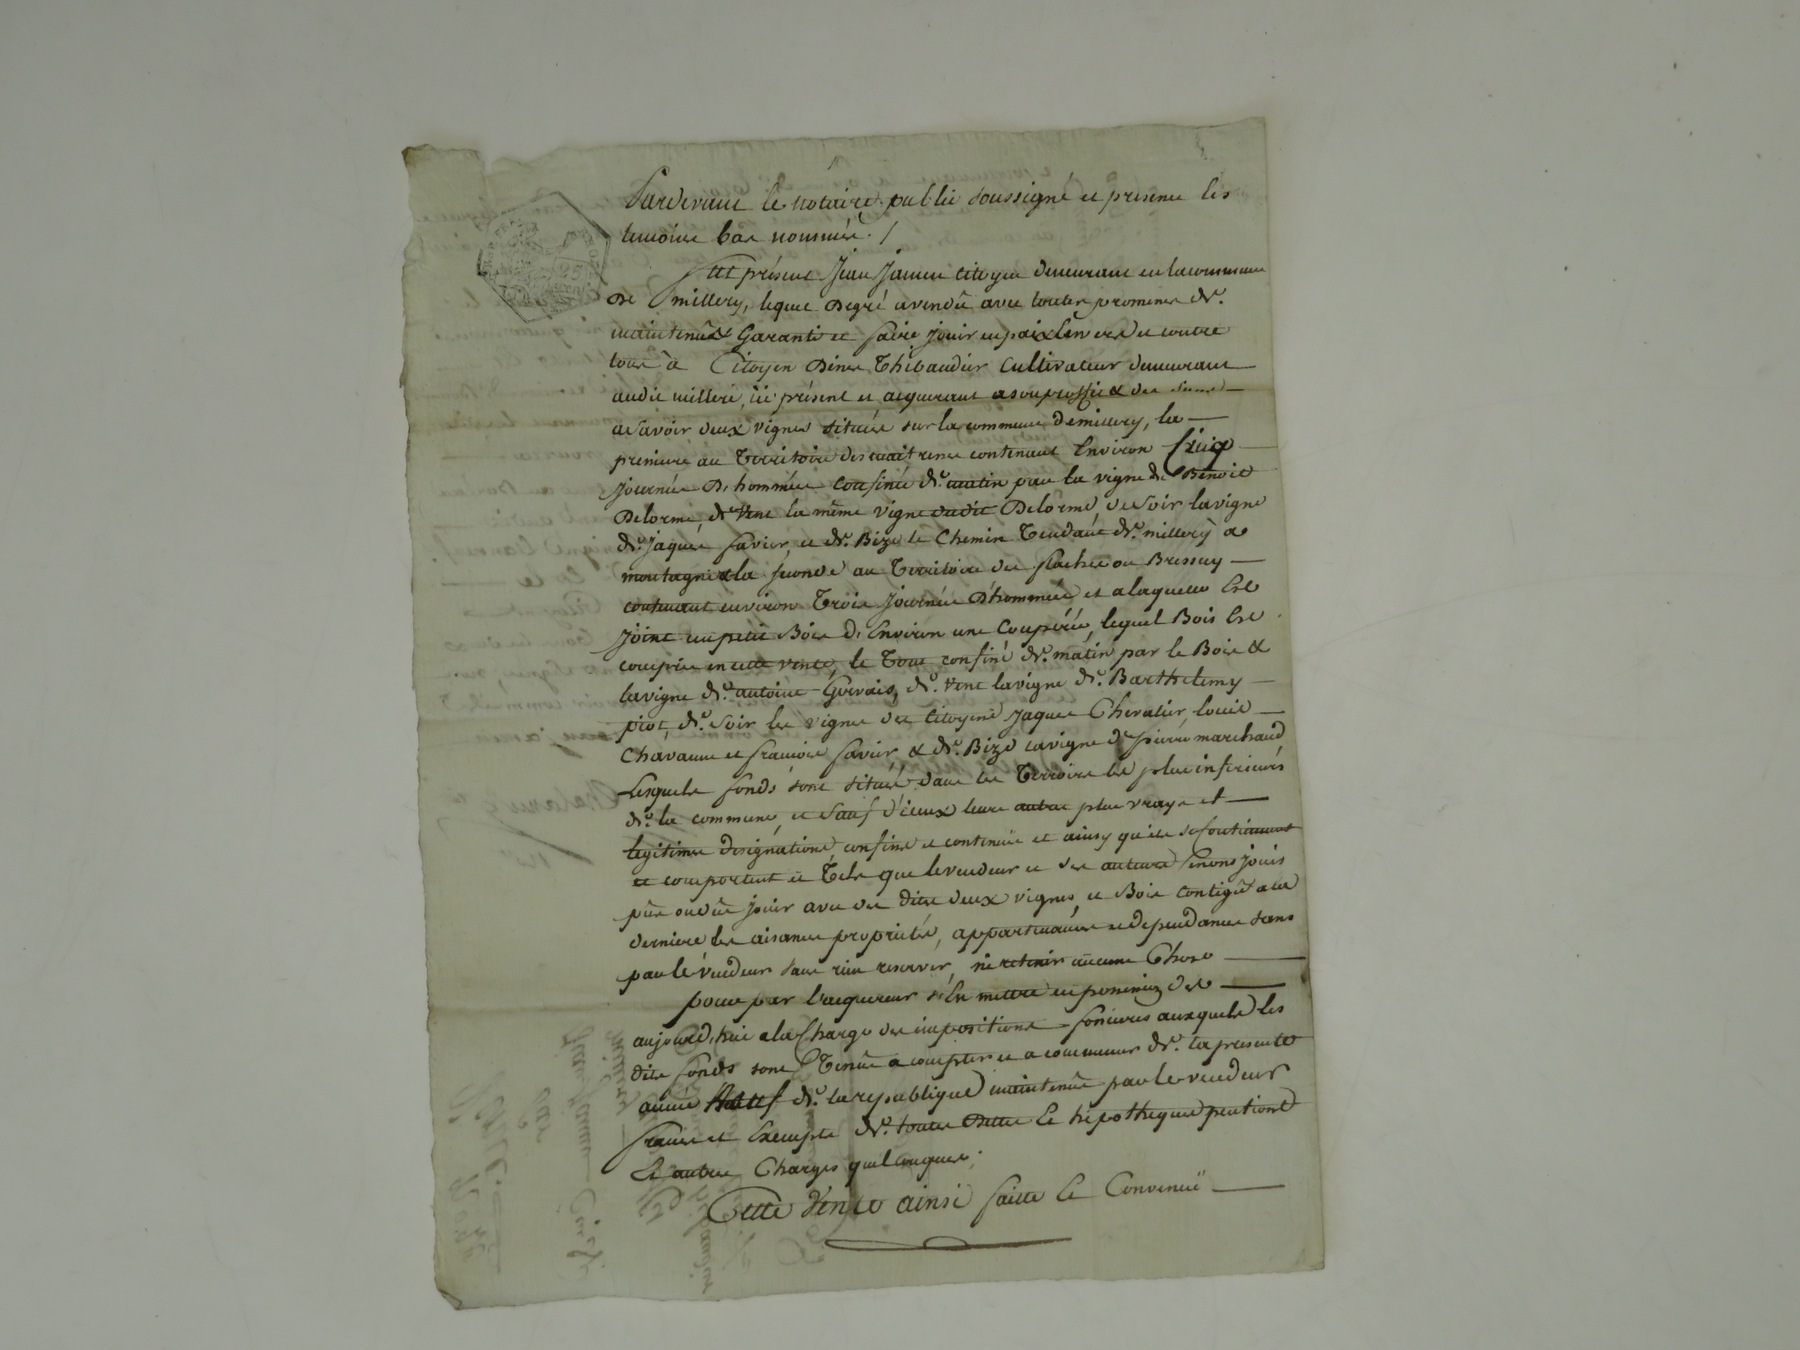 Pardevant le notaire public soussigné et presence les
temoins bas nommés. /
fut présent Jean Jamen citoyen demeurant en la commune
De millery, lequel Degré a vendu avec toutes promesses de.
maintenüe Garantie et faire jouir en paix Envers et contre
tous à Citoyen Denis Thibaudier Cultivateur demeurant
audit milleri, ici présent et acquerant a son proffit & des siens
a Savoir deux vignes située sur la commune de millery, la
premiere au Territoire des contenant Environ Cinq
Journée D'hommée Confiné de. matin par la vigne de Benoit
Delorme, de Vent la même vigne dudit Delorme, de Soir la vigne
de. Jaque favier, et de. Bize le Chemin Tendant de. millery à
montagni & la seconde au Territoire des ou Bressuy
contenant environ Trois Journée D'hommée et a laquelle Est
Joint un petit Bois D'Environ une Coupérée, lequel Bois Est
compris en cette vente, le Tout confiné de. matin par le Bois &
la vigne de. antoine Gervais, de. Vent la vigne de. Barthelemy
piot, de. Soir les vignes des Citoyens Jaques Chevalier, louis
Chavanne et francois favier, & de. Bize la vigne de pierre marchand
Lesquels fonds sont situés dans les Terroirs les plus inferieurs
de. la commune, et Sauf d'iceux leurs autres plus vrayes et
legitimes designations confins et contenüe et ainsy qu'ils
et comportent et Tels que le vendeur et ses auteurs jouis
pûs ou dû jouir avec des dites deux vignes, et Bois Contigû a la
derniere les aisances proprietés, appartenances et dependances sans
par le vendeur sans rien reserver, ni retenir aucune Chose
pour par l'acquereur s'En mettre en possession des
aujourd'hui a la Charge des impositions foncieres auxquels les
dits fonds sont Tenus a compter et a commencer de. la presente
année de. la republique maintenüe par le vendeur
francs et Exempts de. toutes Dettes Et hipotheques pentions
Et autres Charges quelconques.
Cette Vente ainsi faitte Et Convenüe